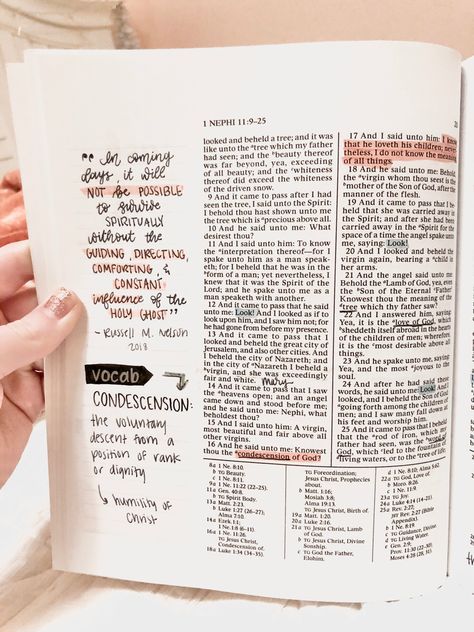 1 NEPHI 11:9–25
"In coming
days, it will
NOT be POSSIBLE
to survive
SPIRITUALLY
without the
GUIDING, DIRECTING,
COMFORTING, &
CONSTANT
influence of the
HOLY GHOST"
- Russell M. Nelson
2018
VOCAB
CONDESCENSION:
the voluntary
descent from a
position of rank
or dignity
↳ humility of
Christ
looked and beheld a tree; and it was
like unto the tree which my father
had seen; and the beauty thereof
was far beyond, yea, exceeding
of all beauty; and the whiteness
thereof did exceed the whiteness
of the driven snow.
9 And it came to pass after I had
seen the tree, I said unto the Spirit:
I behold thou hast shown unto me
the tree which is precious above all.
10 And he said unto me: What
desirest thou?
11 And I said unto him: To know
the interpretation thereof—for I
spake unto him as a man speak-
eth; for I beheld that he was in the
form of a man; yet nevertheless, I
knew that it was the Spirit of the
Lord; and he spake unto me as a
man speaketh with another.
12 And it came to pass that he said
unto me: Look! And I looked as if to
look upon him, and I saw him not; for
he had gone from before my presence.
13 And it came to pass that I
looked and beheld the great city of
Jerusalem, and also other cities. And
I beheld the city of Nazareth; and
in the city of Nazareth I beheld a
virgin, and she was exceedingly
fair and white. mary
14 And it came to pass that I saw
the heavens open; and an angel
came down and stood before me;
and he said unto me: Nephi, what
beholdest thou?
15 And I said unto him: A virgin,
most beautiful and fair above all
other virgins.
16 And he said unto me: Knowest
thou the condescension of God?
17 And I said unto him: I know
that he loveth his children; never-
theless, I do not know the meaning
of all things.
18 And he said unto me: Behold,
the virgin whom thou seest is the
mother of the Son of God, after the
manner of the flesh.
19 And it came to pass that I be-
held that she was carried away in
the Spirit; and after she had been
carried away in the Spirit for the
space of a time the angel spake unto
me, saying: Look!
20 And I looked and beheld the
virgin again, bearing a child in
her arms.
21 And the angel said unto me:
Behold the Lamb of God, yea, even
the Son of the Eternal Father!
Knowest thou the meaning of the
tree which thy father saw?
22 And I answered him, saying:
Yea, it is the love of God, which
sheddeth itself abroad in the hearts
of the children of men; wherefore,
it is the most desirable above all
things.
23 And he spake unto me, saying:
Yea, and the most joyous to the
soul.
24 And after he had said these
words, he said unto me: Look! And I
looked, and I beheld the Son of God
going forth among the children of
men; and I saw many fall down at
his feet and worship him.
25 And it came to pass that I beheld
that the rod of iron, which my
father had seen, was the word of
God, which led to the fountain of
living waters, or to the tree of life;
8a 1 Ne. 8:10.
b TG Beauty.
c 1 Ne. 8:11.
9a 1 Ne. 11:22 (22–25).
11a Gen. 40:8.
b TG Spirit Body.
13a Matt. 2:23.
b Luke 1:27 (26–27);
Alma 7:10.
14a Ezek. 1:1;
1 Ne. 1:8 (6–11).
16a 1 Ne. 11:26.
TG Jesus Christ,
Condescension of.
18a Luke 1:34 (34–35).
TG Foreordination;
Jesus Christ, Prophecies
about.
b Matt. 1:16;
Mosiah 3:8;
Alma 19:13.
TG Jesus Christ, Birth of.
19a Matt. 1:20.
20a Luke 2:16.
21a TG Jesus Christ, Lamb
of God.
b TG Jesus Christ, Divine
Sonship.
c TG God the Father,
Elohim.
d 1 Ne. 8:10; Alma 5:62.
22a TG God, Love of.
b Moro. 8:26.
c 1 Ne. 11:9.
23a TG Joy.
24a Luke 4:14 (14–21).
25a Rev. 2:27;
JST Rev. 2:27 (Bible
Appendix).
b 1 Ne. 8:19.
c TG Guidance, Divine.
d TG Living Water.
e Gen. 2:9;
Prov. 11:30 (22–30);
Moses 4:28 (28, 31).